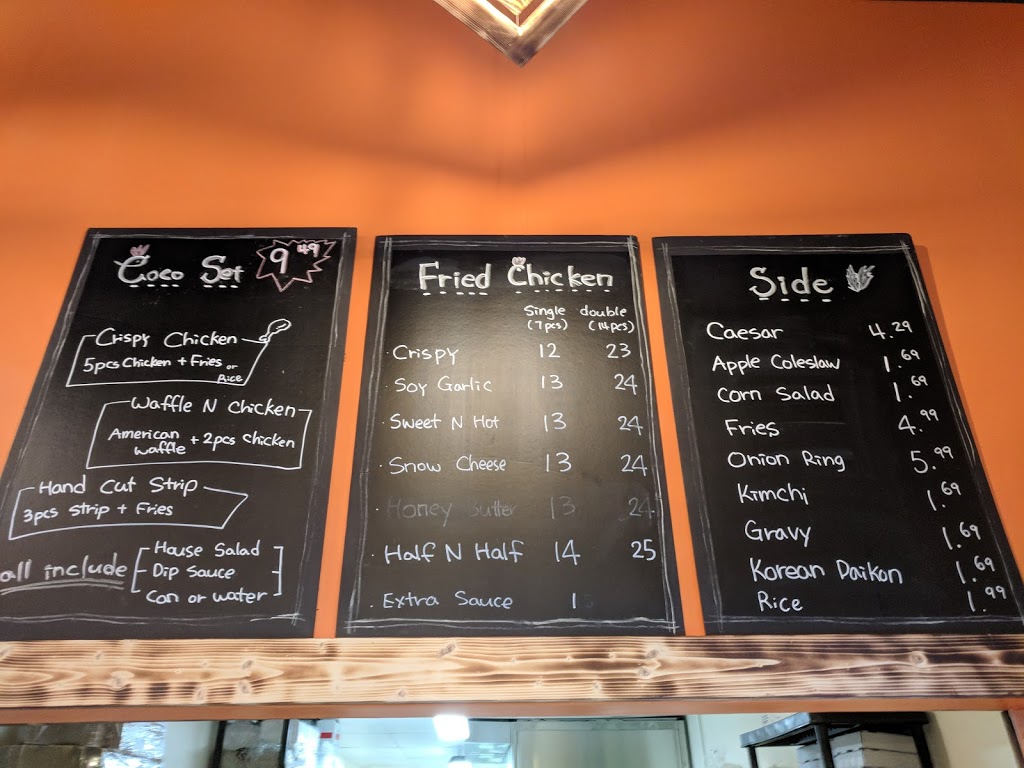 Coco Set 9.49
Crispy Chicken
5pcs Chicken + Fries or
Rice
Waffle N Chicken
American
waffle + 2pcs chicken
Hand Cut Strip
3pcs strip + Fries
all include
House Salad
Dip Sauce
Can or water
Fried Chicken
Single double
(7pcs) (14pcs)
Crispy 12 23
Soy Garlic 13 24
Sweet N Hot 13 24
Snow Cheese 13 24
Honey Butter 13 24
Half N Half 14 25
Extra Sauce 1
Side
Caesar 4.29
Apple Coleslaw 1.69
Corn Salad 1.69
Fries 4.99
Onion Ring 5.99
Kimchi 1.69
Gravy 1.69
Korean Daikon 1.69
Rice 1.99